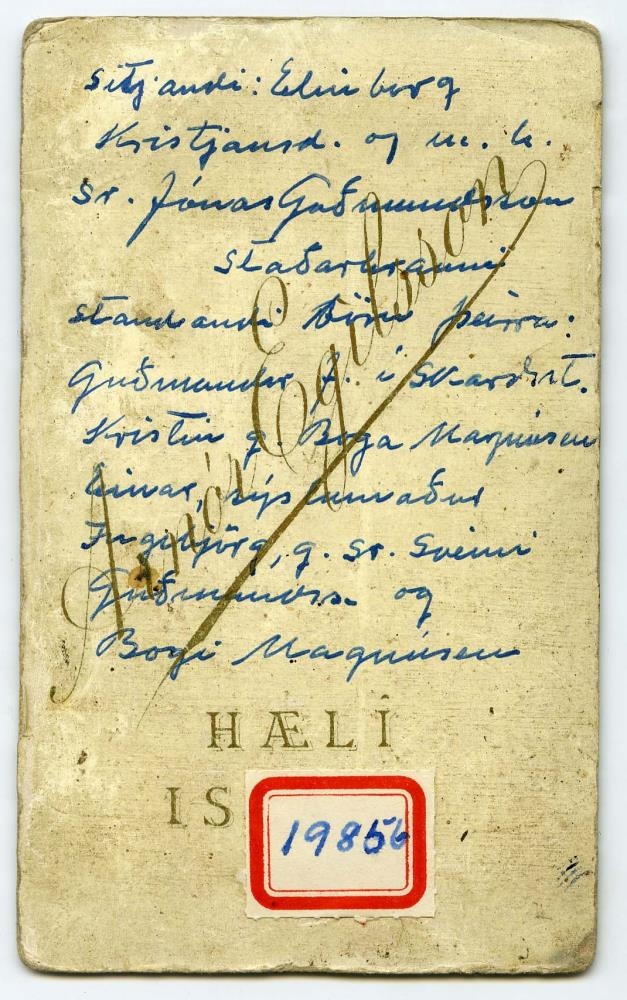 Sitjandi: Elinborg
Kristjánsd. og m. h.
Sr. Jónas Guðmundsson
Staðarhrauni
standandi börn þeirra:
Guðmundur f. í Skarðst.
Kristín g. Boga Magnúsen
Einar, sýslumaður
Ingibjörg, g. Sr. Sveini
Guðmundss. og
Bogi Magnúsen
Arnór Egilsson
HÆLI
IS
1985b